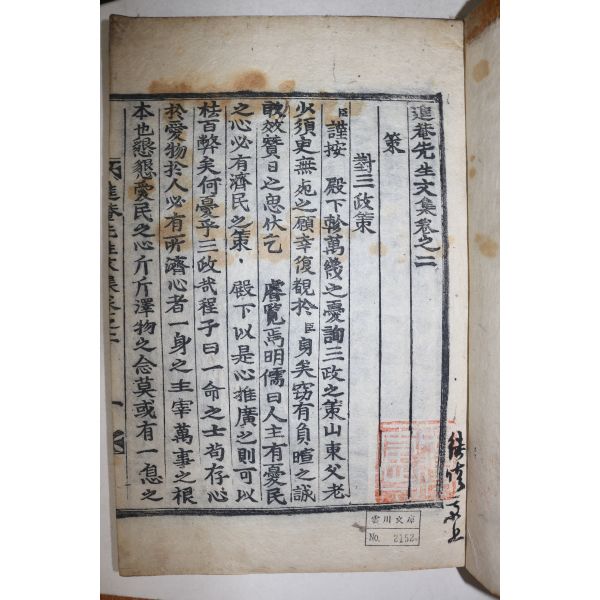 進菴先生文集卷之二
策
對三政策
臣謹按 殿下軫萬幾之憂詢三政之策山東父老
少須臾無死之願幸復覩於臣身矣窃有負暄之誠
敢效贊日之忠伏乞 睿覧焉明儒曰人主有憂民
之心必有濟民之策 殿下以是心推廣之則可以
祛百弊矣何憂乎三政哉程子曰一命之士苟存心
於愛物於人必有所濟心者一身之主宰萬事之根
本也懇懇愛民之心斤斤澤物之念莫或有一息之
進菴先生文集卷之二 一
雲川文庫
No. 2152